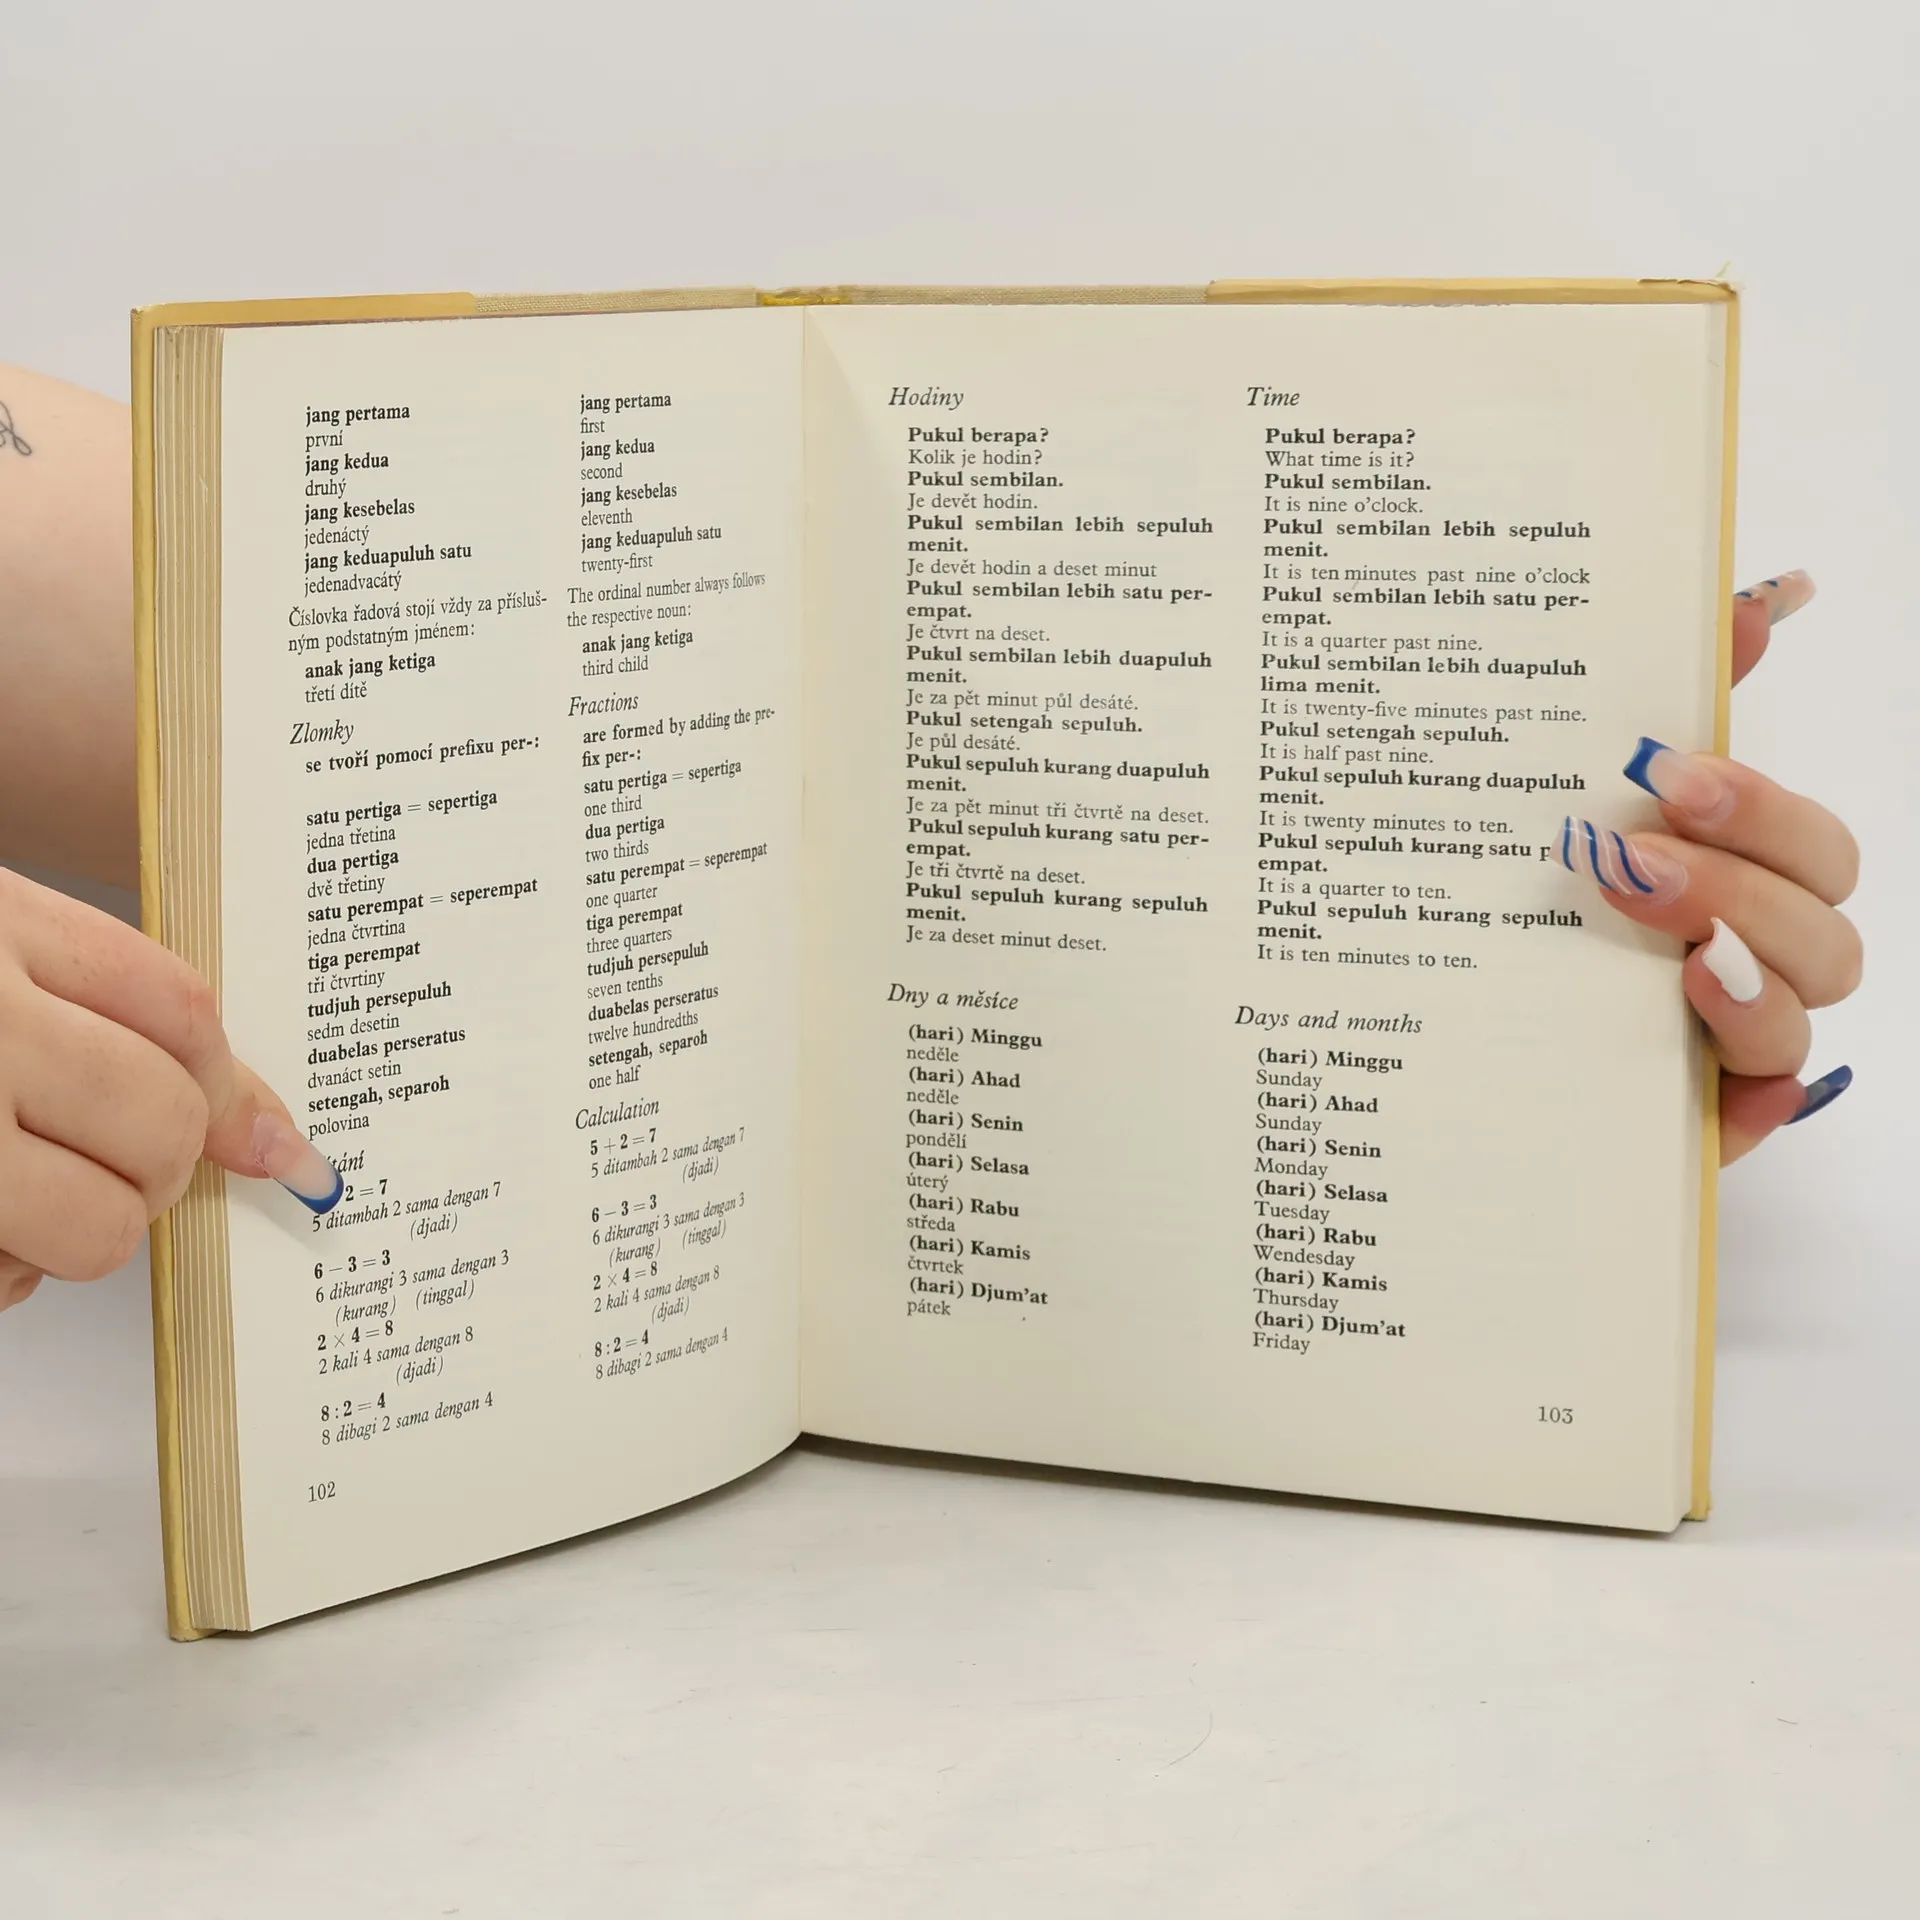 jang pertama
první
jang kedua
druhý
jang kesebelas
jedenáctý
jang keduapuluh satu
jedenadvacátý
Číslovka řadová stojí vždy za přísluš-
ným podstatným jménem:
anak jang ketiga
třetí dítě
Zlomky
se tvoří pomocí prefixu per-:
satu pertiga = sepertiga
jedna třetina
dua pertiga
dvě třetiny
satu perempat = seperempat
jedna čtvrtina
tiga perempat
tři čtvrtiny
tudjuh persepuluh
sedm desetin
duabelas perseratus
dvanáct setin
setengah, separoh
polovina
2 = 7
5 ditambah 2 sama dengan 7
(djadi)
6 – 3 = 3
6 dikurangi 3 sama dengan 3
(kurang) (tinggal)
2 × 4 = 8
2 kali 4 sama dengan 8
(djadi)
8 : 2 = 4
8 dibagi 2 sama dengan 4
102
jang pertama
first
jang kedua
second
jang kesebelas
eleventh
jang keduapuluh satu
twenty-first
The ordinal number always follows
the respective noun:
anak jang ketiga
third child
Fractions
are formed by adding the pre-
fix per-:
satu pertiga = sepertiga
one third
dua pertiga
two thirds
satu perempat = seperempat
one quarter
tiga perempat
three quarters
tudjuh persepuluh
seven tenths
duabelas perseratus
twelve hundredths
setengah, separoh
one half
Calculation
5 + 2 = 7
5 ditambah 2 sama dengan 7
(djadi)
6 – 3 = 3
6 dikurangi 3 sama dengan 3
(kurang) (tinggal)
2 × 4 = 8
2 kali 4 sama dengan 8
(djadi)
8 : 2 = 4
8 dibagi 2 sama dengan 4
Hodiny
Pukul berapa?
Kolik je hodin?
Pukul sembilan.
Je devět hodin.
Pukul sembilan lebih sepuluh
menit.
Je devět hodin a deset minut
Pukul sembilan lebih satu per-
empat.
Je čtvrt na deset.
Pukul sembilan lebih duapuluh
menit.
Je za pět minut půl desáté.
Pukul setengah sepuluh.
Je půl desáté.
Pukul sepuluh kurang duapuluh
menit.
Je za pět minut tři čtvrtě na deset.
Pukul sepuluh kurang satu per-
empat.
Je tři čtvrtě na deset.
Pukul sepuluh kurang sepuluh
menit.
Je za deset minut deset.
Dny a měsíce
(hari) Minggu
neděle
(hari) Ahad
neděle
(hari) Senin
pondělí
(hari) Selasa
úterý
(hari) Rabu
středa
(hari) Kamis
čtvrtek
(hari) Djum'at
pátek
Time
Pukul berapa?
What time is it?
Pukul sembilan.
It is nine o'clock.
Pukul sembilan lebih sepuluh
menit.
It is ten minutes past nine o'clock
Pukul sembilan lebih satu per-
empat.
It is a quarter past nine.
Pukul sembilan lebih duapuluh
lima menit.
It is twenty-five minutes past nine.
Pukul setengah sepuluh.
It is half past nine.
Pukul sepuluh kurang duapuluh
menit.
It is twenty minutes to ten.
Pukul sepuluh kurang satu
empat.
It is a quarter to ten.
Pukul sepuluh kurang sepuluh
menit.
It is ten minutes to ten.
Days and months
(hari) Minggu
Sunday
(hari) Ahad
Sunday
(hari) Senin
Monday
(hari) Selasa
Tuesday
(hari) Rabu
Wendesday
(hari) Kamis
Thursday
(hari) Djum'at
Friday
103